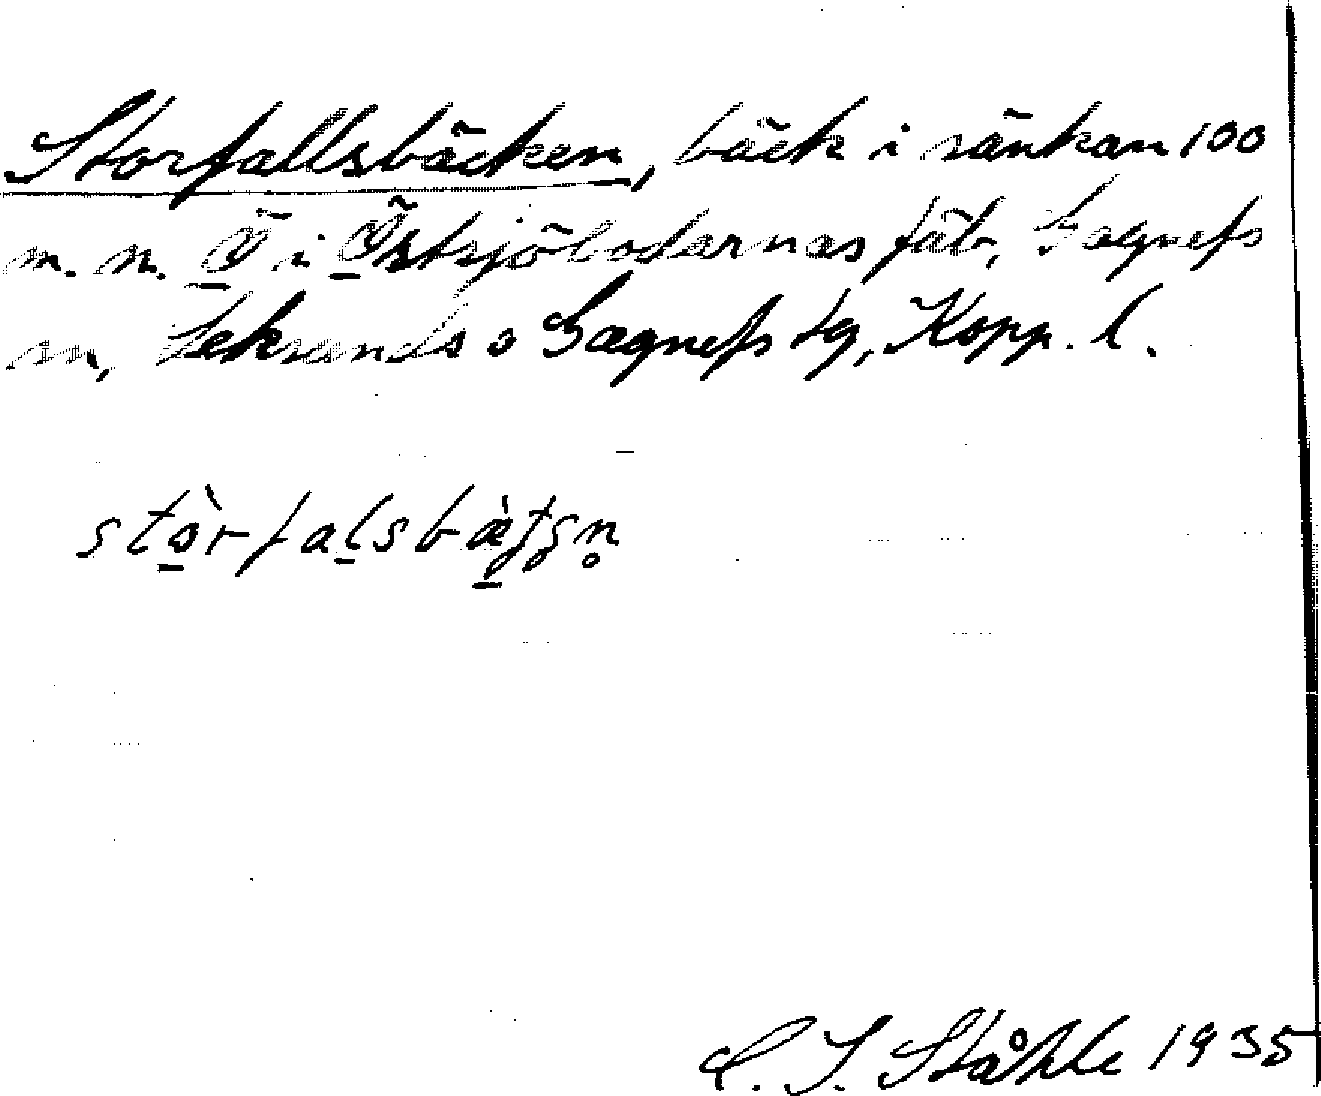 Storfallsbäcken, bäck i sänkan 100
m. n. Ö i Östsjöbodarnas fäb, Gagnefs
sn, Leksands o Gagnefs tg, Kopp. l.
stòrfalsbæ̀tsn̥
C. I. Ståhle 1935